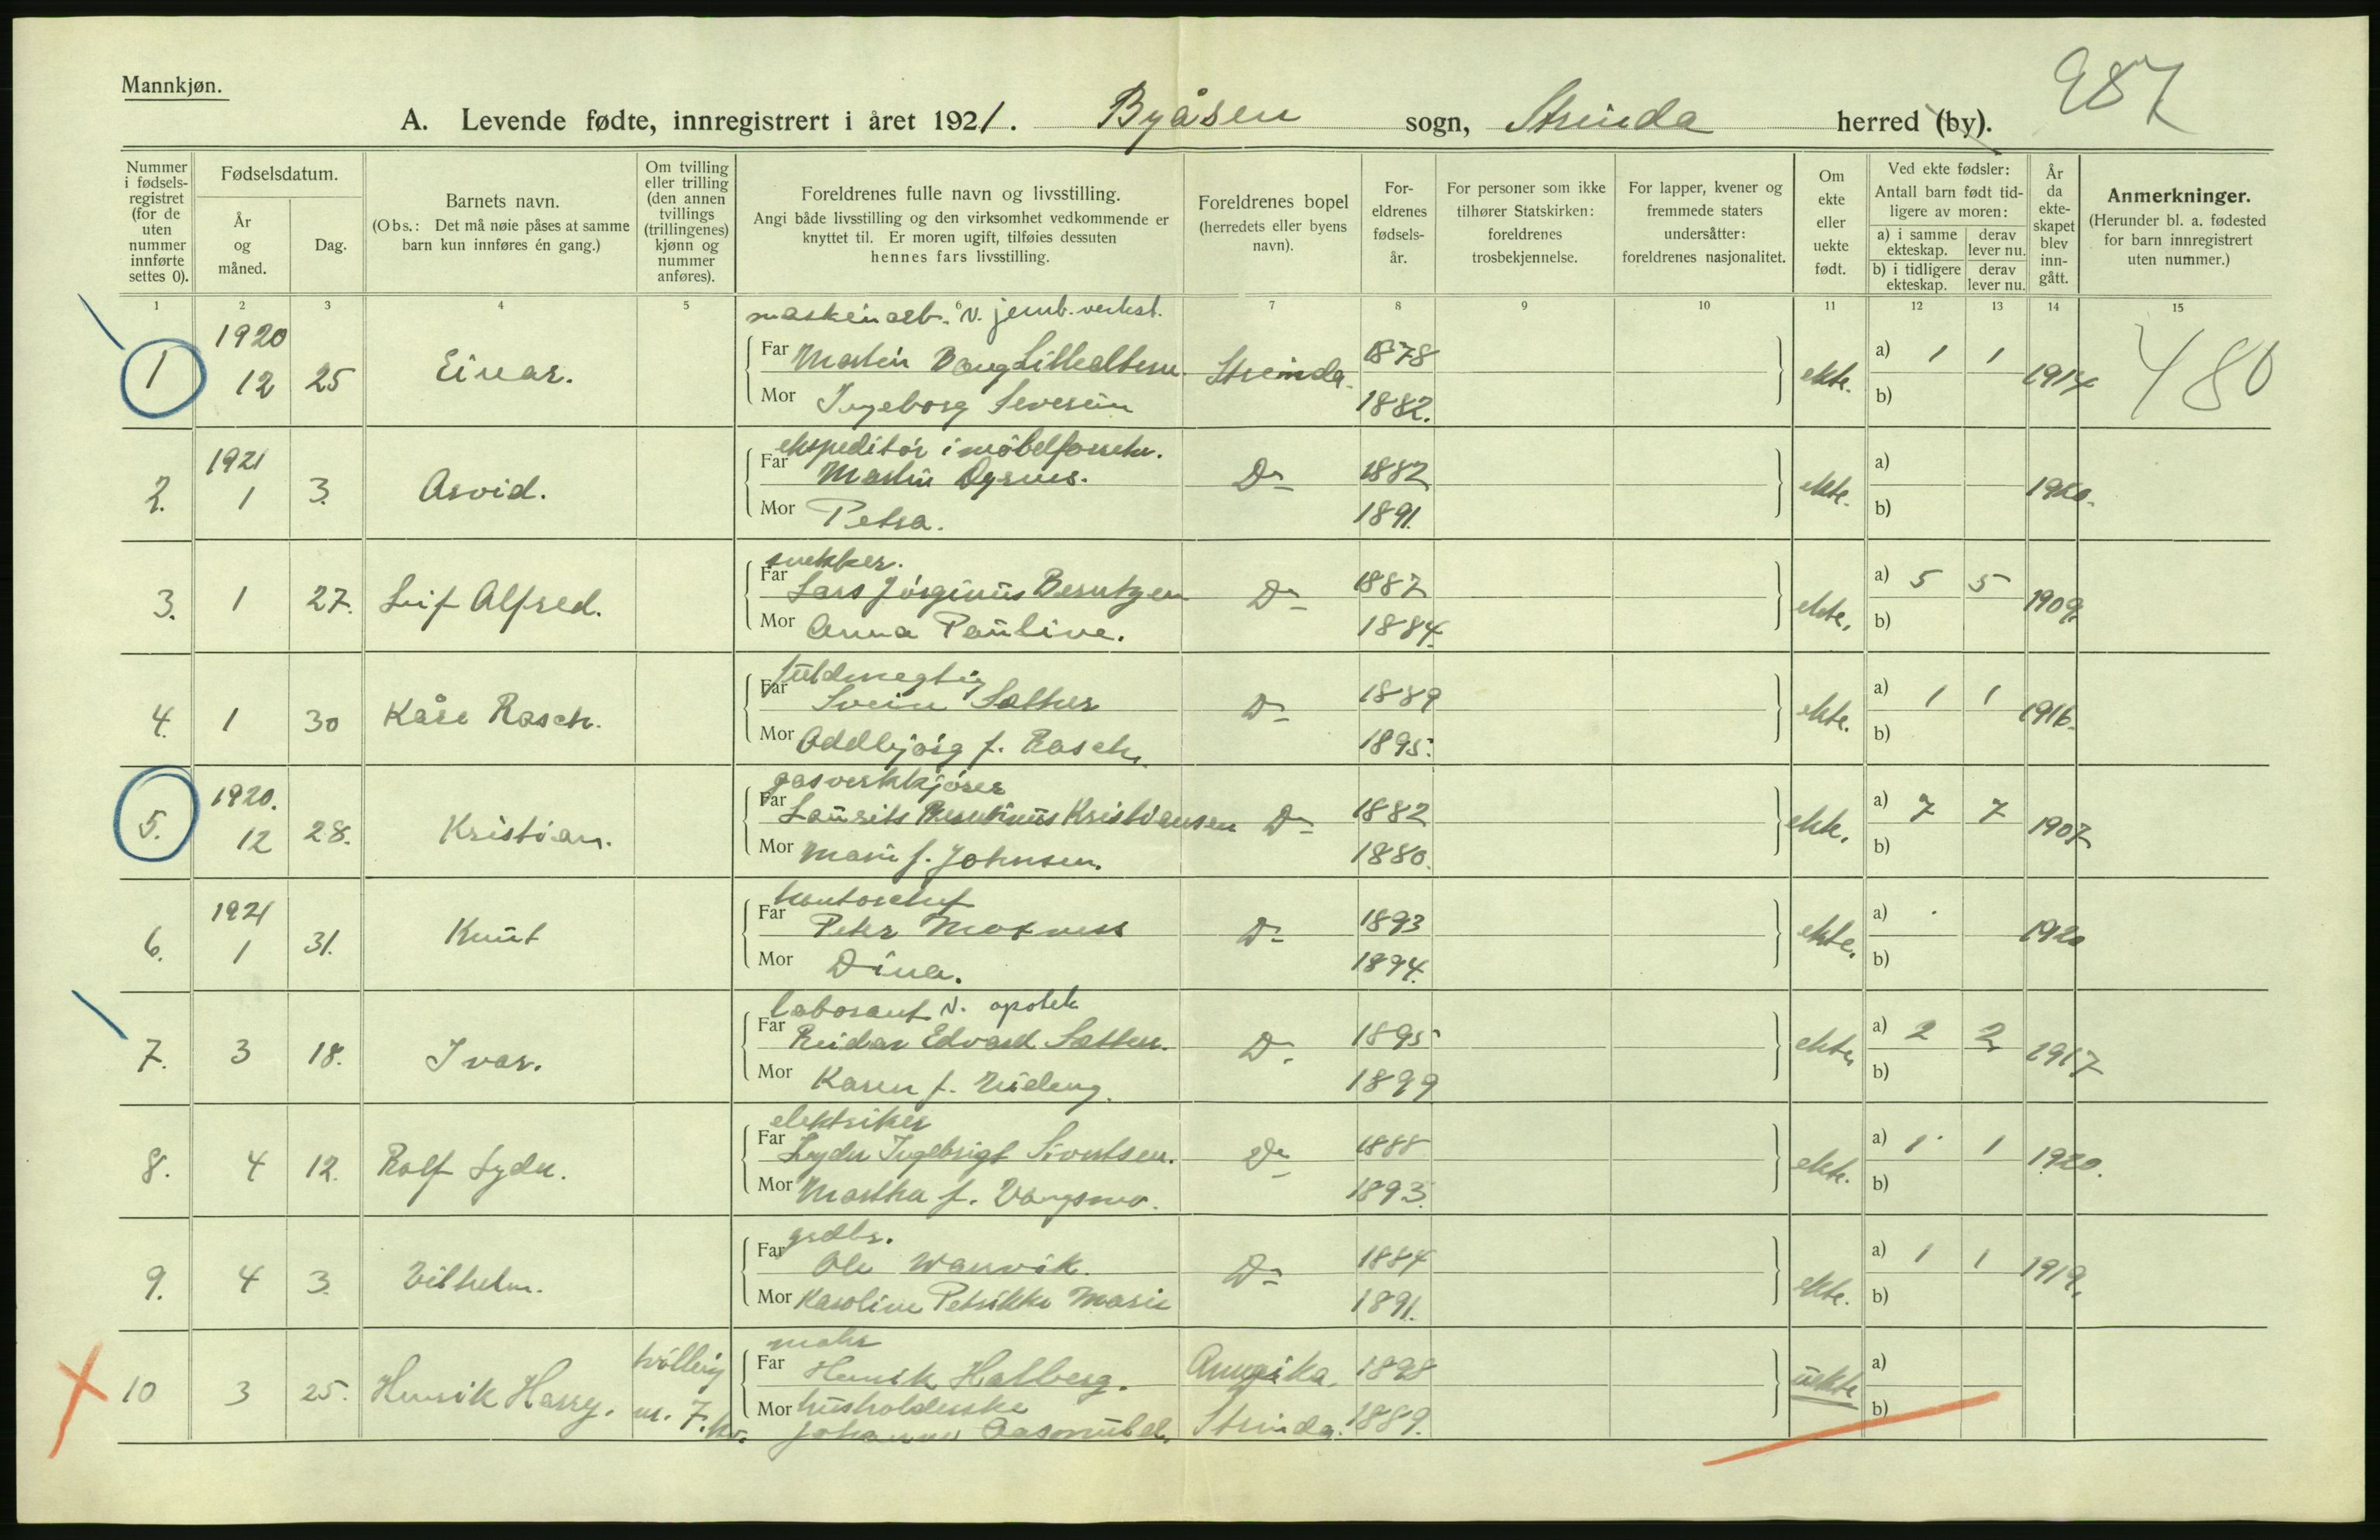 Mannkjøn.
987
A. Levende fødte, innregistrert i året 1921. Byåsen sogn, Strinda herred (by).
Nummer i fødsels-registret (for de uten nummer innførte settes 0).
Fødselsdatum.
År og måned.
Dag.
Barnets navn.
(Obs.: Det må nøie påses at samme barn kun innføres én gang.)
Om tvilling eller trilling (den annen tvillings (trillingenes) kjønn og nummer anføres).
Foreldrenes fulle navn og livsstilling.
Angi både livsstilling og den virksomhet vedkommende er knyttet til. Er moren ugift, tilføies dessuten hennes fars livsstilling.
Foreldrenes bopel (herredets eller byens navn).
For-eldrenes fødsels-år.
For personer som ikke tilhører Statskirken: foreldrenes trosbekjennelse.
For lapper, kvener og fremmede staters undersåtter: foreldrenes nasjonalitet.
Om ekte eller uekte født.
Ved ekte fødsler: Antall barn født tid-ligere av moren:
a) i samme ekteskap. derav lever nu.
b) i tidligere ekteskap. derav lever nu.
År da ekte-skapet blev inn-gått.
Anmerkninger.
(Herunder bl. a. fødested for barn innregistrert uten nummer.)
1 2 3 4 5 7 8 9 10 11 12 13 14 15
maskinarb. v. jernb. verkst.
1 1920 12 25 Einar. Far Martin Strinda. 1878 ekte. a) 1 1 1914 480
Mor Ingeborg Severin 1882. b)
ekspeditör i möbelforretn.
2. 1921 1 3. Arvid. Far Martin Do 1882 ekte. a)
Mor Petra. 1891. b)
snekker.
3. 1 27. Leif Alfred. Far Lars Jörginus Berntzen Do 1887 ekte. a) 5 5 1909.
Mor Anna Pauline. 1884. b)
fuldmegtig
4. 1 30 Kåre Rasch. Far Svein Sæther Do 1889 ekte. a) 1 1 1916.
Mor Oddbjörg f. Rasch. 1895. b)
gasverkkjörer
5. 1920. 12 28. Kristian. Far Laurits Kristiansen Do 1882 ekte. a) 7 7 1907.
Mor Marie f. Johnsen. 1880. b)
kontorchef
6. 1921 1 31. Knut Far Peter Moxness Do 1893 ekte. a) 1920
Mor Dina. 1894. b)
laborant v. apotek
7. 3 18. Ivar. Far Reidar Edvard Sæther. Do 1895 ekte. a) 2 2 1917
Mor Karen f. 1899 b)
elektriker
8. 4 12. Rolf Lyder. Far Lyder Ingebrigt Sivertsen. Do 1888 ekte. a) 1 1 1920.
Mor Martha f. 1893. b)
grdbr.
9. 4 3. Vilhelm. Far Ole Wanvik. Do 1884 ekte. a) 1 1 1919.
Mor Karoline Petrikke Marie 1891. b)
10 3 25. Henrik Harry. tvilling nr. 7. kv. Far Henrik Hallberg. Amerika. 1898 uekte a)
Mor husholderske Strinda. 1889. b)